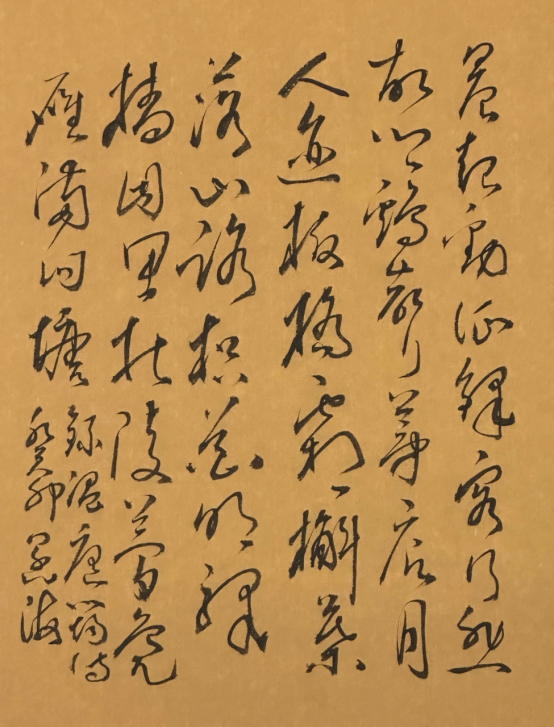 晨起動征鐸客行悲
故鄉鷄聲茅店月
人迹板橋霜槲葉
落山路枳花明驛
牆因思杜陵夢鳧
雁滿回塘
錄溫庭筠詩
癸卯 海